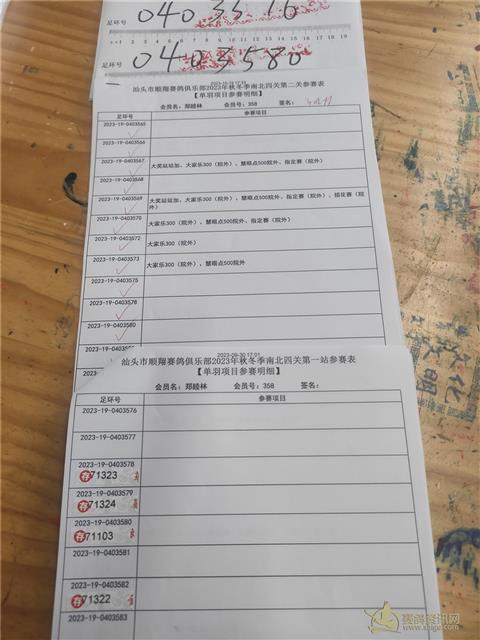 足环号
0403576
0 cm 1 2 3 4 5 6 7 8 9 10 11 12 13 14 15 16 17 18 19
足环号
0403580
2023-10-19 17:33
汕头市顺翔赛鸽俱乐部2023年秋冬季南北四关第二关参赛表
【单羽项目参赛明细】
会员名:郑睦林 会员号:358 签名:
足环号 参赛项目
2023-19-0403565
2023-19-0403566
2023-19-0403567 大奖站站加、大家乐300(院外)、慧眼点500院外、指定赛(院外)
2023-19-0403568
2023-19-0403569 大奖站站加、大家乐300(院外)、慧眼点500院外、指定赛(院外)、插花赛(院外)
2023-19-0403570 大家乐300(院外)、慧眼点500院外、指定赛(院外)
2023-19-0403572 大家乐300(院外)
2023-19-0403573 大家乐300(院外)、慧眼点500院外
2023-19-0403575
2023-19-0403578
2023-19-0403580
2023-09-30 17:01
汕头市顺翔赛鸽俱乐部2023年秋冬季南北四关第一站参赛表
【单羽项目参赛明细】
会员名:郑睦林 会员号:358 签名:
足环号 参赛项目
2023-19-0403576
2023-19-0403577
2023-19-0403578
存71323
2023-19-0403579
存71324
2023-19-0403580
存71103
2023-19-0403581
2023-19-0403582
存71322
2023-19-0403583
文化
赛鸽资讯网